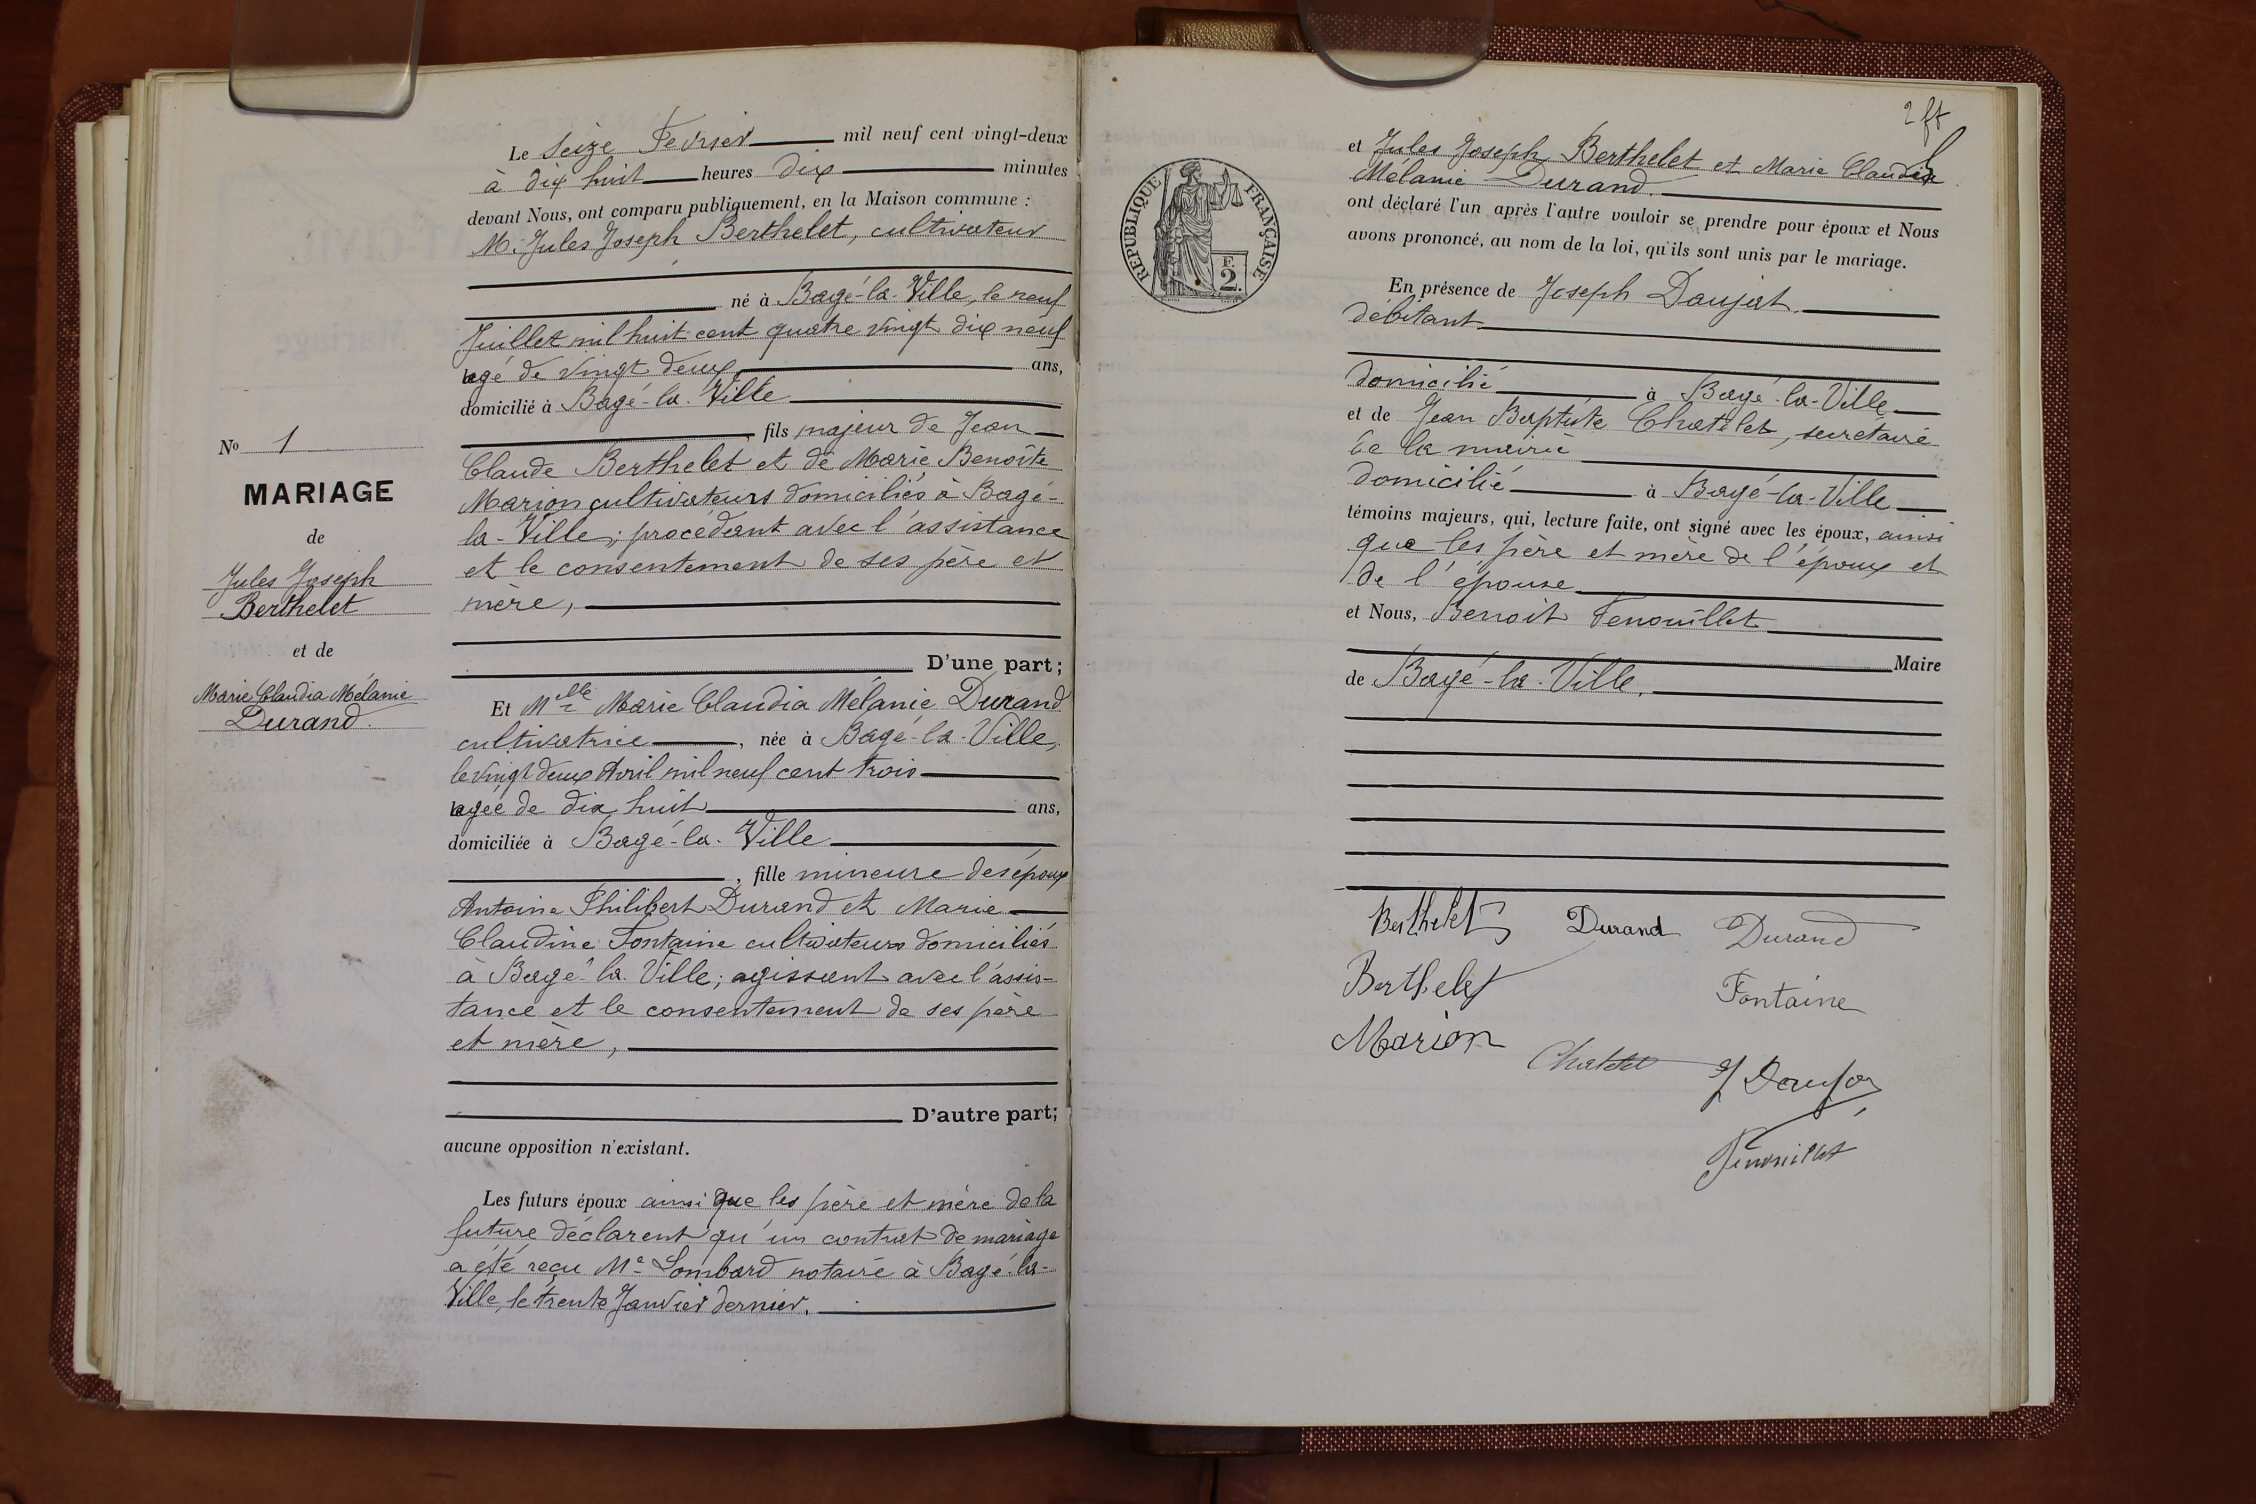 N° 1
MARIAGE
de
Jules Joseph
Berthelet
et de
Marie Claudia Mélanie
Durand.
Le seize Fevrier mil neuf cent vingt-deux
à dix huit heures dix minutes
devant Nous, ont comparu publiquement, en la Maison commune :
M. Jules Joseph Berthelet, cultivateur
né à Bagé-la-Ville, le neuf
Juillet mil huit cent quatre vingt dix neuf
agé de vingt deux ans,
domicilié à Bagé-la-Ville
, fils majeur de Jean
Claude Berthelet et de Marie Benoîte
Marion cultivateurs domiciliés à Bagé-
la-Ville ; procédant avec l'assistance
et le consentement de ses père et
mère,
D'une part ;
Et Mlle Marie Claudia Mélanie Durand
cultivatrice , née à Bagé-la-Ville,
le vingt deux Avril mil neuf cent trois
agée de dix huit ans,
domiciliée à Bagé-la-Ville
, fille mineure des époux
Antoine Philibert Durand et Marie
Claudine Fontaine cultivateurs domiciliés
à Bagé-la-Ville ; agissant avec l'assis-
tance et le consentement de ses père
et mère,
D'autre part;
aucune opposition n'existant.
Les futurs époux ainsi que les père et mère de la
future déclarent qu'un contrat de mariage
a été reçu Me Lombard notaire à Bagé-la-
Ville, le trente Janvier dernier.
2 ft
REPUBLIQUE FRANÇAISE
F.
2.
et Jules Joseph Berthelet et Marie Claudia
Mélanie Durand.
ont déclaré l'un après l'autre vouloir se prendre pour époux et Nous
avons prononcé, au nom de la loi, qu'ils sont unis par le mariage.
En présence de Joseph Daujat.
débitant
domicilié à Bagé-la-Ville
et de Jean Baptiste Chatelet, secretaire
de la mairie
domicilié à Bagé-la-Ville
témoins majeurs, qui, lecture faite, ont signé avec les époux, ainsi
que les père et mère de l'époux et
de l'épouse
et Nous, Benoit Fenouillet
Maire
de Bagé-la-Ville.
Berthelet Durand Durand
Berthelet Fontaine
Marion
Chatelet J Daujat
Fenouillet